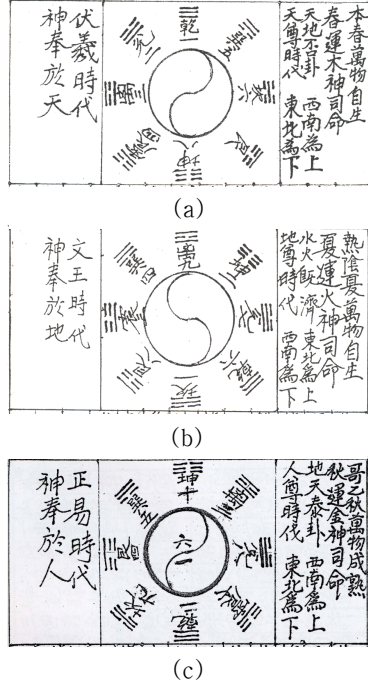 本春萬物自生
春運木神司命
天地否卦 西南為上
天尊時代 東北為下
乾一
巽五
坎六
艮
坤八
震四
離三
兌二
伏羲時代
神奉於天
(a)
熱陰夏萬物自生
夏運火神司命
水火旣濟 東北為上
地尊時代 西南為下
離九
坤二
兌七
乾六
坎
艮八
震三
巽四
文王時代
神奉於地
(b)
哥乙秋萬物成熟
秋運金神司命
地天泰卦 西南為上
人尊時代 東北為下
坤十
兌
乾
艮
巽五
六一
正易時代
神奉於人
(c)